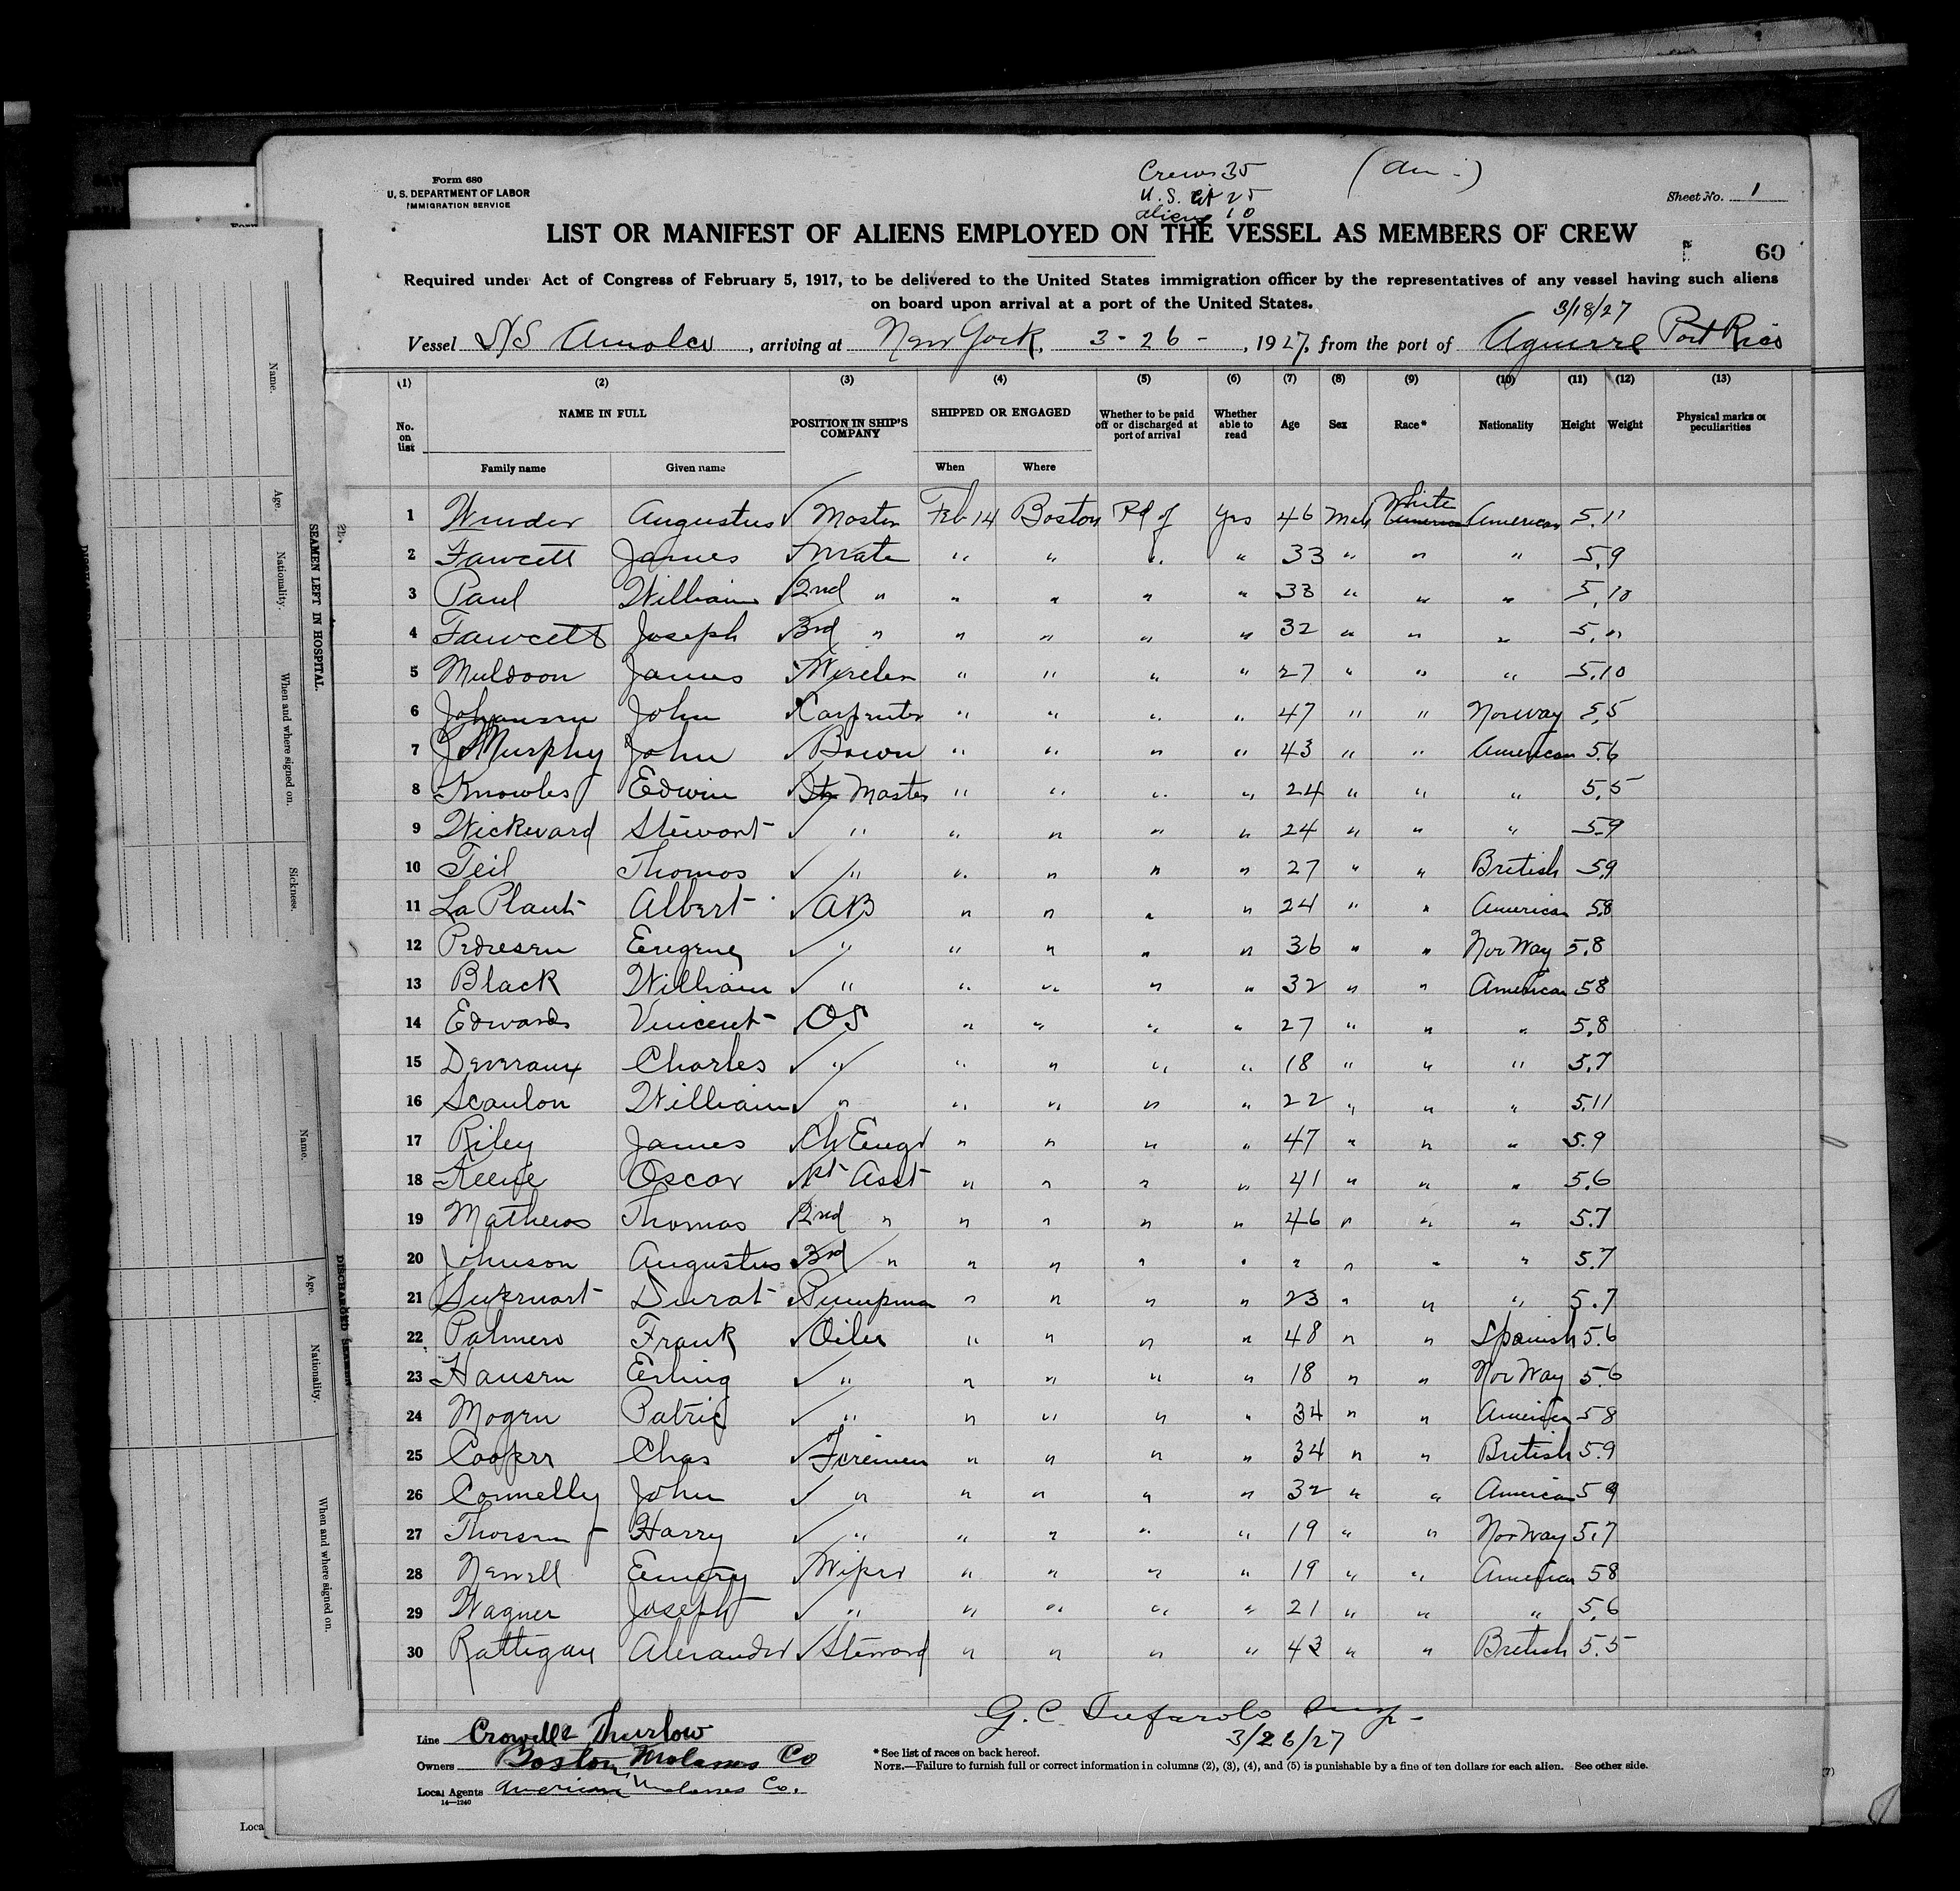 Form 680
U. S. DEPARTMENT OF LABOR
IMMIGRATION SERVICE
Crew 35
U. S. Cit 25
aliens 10
(Am.)
Sheet No. 1
LIST OR MANIFEST OF ALIENS EMPLOYED ON THE VESSEL AS MEMBERS OF CREW
60
Required under Act of Congress of February 5, 1917, to be delivered to the United States immigration officer by the representatives of any vessel having such aliens
on board upon arrival at a port of the United States.
3/18/27
Vessel S/S Amolco, arriving at New York, 3-26-, 1927, from the port of Aguirre Port Rico
(1) (2) (3) (4) (5) (6) (7) (8) (9) (10) (11) (12) (13)
No. on list NAME IN FULL POSITION IN SHIP'S COMPANY SHIPPED OR ENGAGED Whether to be paid off or discharged at port of arrival Whether able to read Age Sex Race* Nationality Height Weight Physical marks or peculiarities
Family name Given name When Where
1 Winder Augustus Master Feb 14 Boston Pd of Yes 46 Male White American 5.11
2 Fawcett James Mate " " " " 33 " " " 5.9
3 Paul William 2nd " " " " " 38 " " " 5.10
4 Fawcett Joseph 3rd " " " " " 32 " " " 5."
5 Muldoon James Wireless " " " " 27 " " " 5.10
6 Johansen John Carpenter " " " " 47 " " Norway 5.5
7 Murphy John Bosun " " " " 43 " " American 5.6
8 Knowles Edwin Master " " " " 24 " " " 5.5
9 Wickward Stewart " " " " " 24 " " " 5.9
10 Teil Thomas " " " " " 27 " " British 5.9
11 La Plant Albert AB " " " " 24 " " American 5.8
12 Pedresen " " " " " 36 " " NorWay 5.8
13 Black William " " " " " 32 " " American 58
14 Edwards Vincent OS " " " " 27 " " " 5.8
15 Deveraux Charles " " " " " 18 " " " 5.7
16 Scanlon William " " " " " 22 " " " 5.11
17 Riley James Ch Engr " " " " 47 " " " 5.9
18 Keene Oscar 1st Asst " " " " 41 " " " 5.6
19 Mathews Thomas 2nd " " " " " 46 " " " 5.7
20 Johnson Augustus 3rd " " " " " " " " " 5.7
21 Durat Pumpman " " " " 23 " " " 5.7
22 Palmero Frank Oiler " " " " 48 " " Spanish 5.6
23 Hansen Erling " " " " " 18 " " NorWay 5.6
24 Mogen Patric " " " " " 34 " " American 58
25 Cooper Chas Firemen " " " " 34 " " British 5.9
26 Connelly John " " " " " 32 " " American 59
27 Thorsen Harry " " " " " 19 " " NorWay 5.7
28 Newell Emery Wiper " " " " 19 " " American 58
29 Wagner Joseph " " " " " 21 " " " 5.6
30 Rattigan Alexander Steward " " " " 43 " " British 5.5
Line Crowell & Thurlow
Owners Boston Molasses Co
Local Agents American Molasses Co.
14—1240
G. C.
3/26/27
* See list of races on back hereof.
NOTE.—Failure to furnish full or correct information in columns (2), (3), (4), and (5) is punishable by a fine of ten dollars for each alien. See other side.
Name.
Age.
Nationality.
When and where signed on.
Sickness.
SEAMEN LEFT IN HOSPITAL.
Name.
Age.
Nationality.
When and where signed on.
Loca
(7)